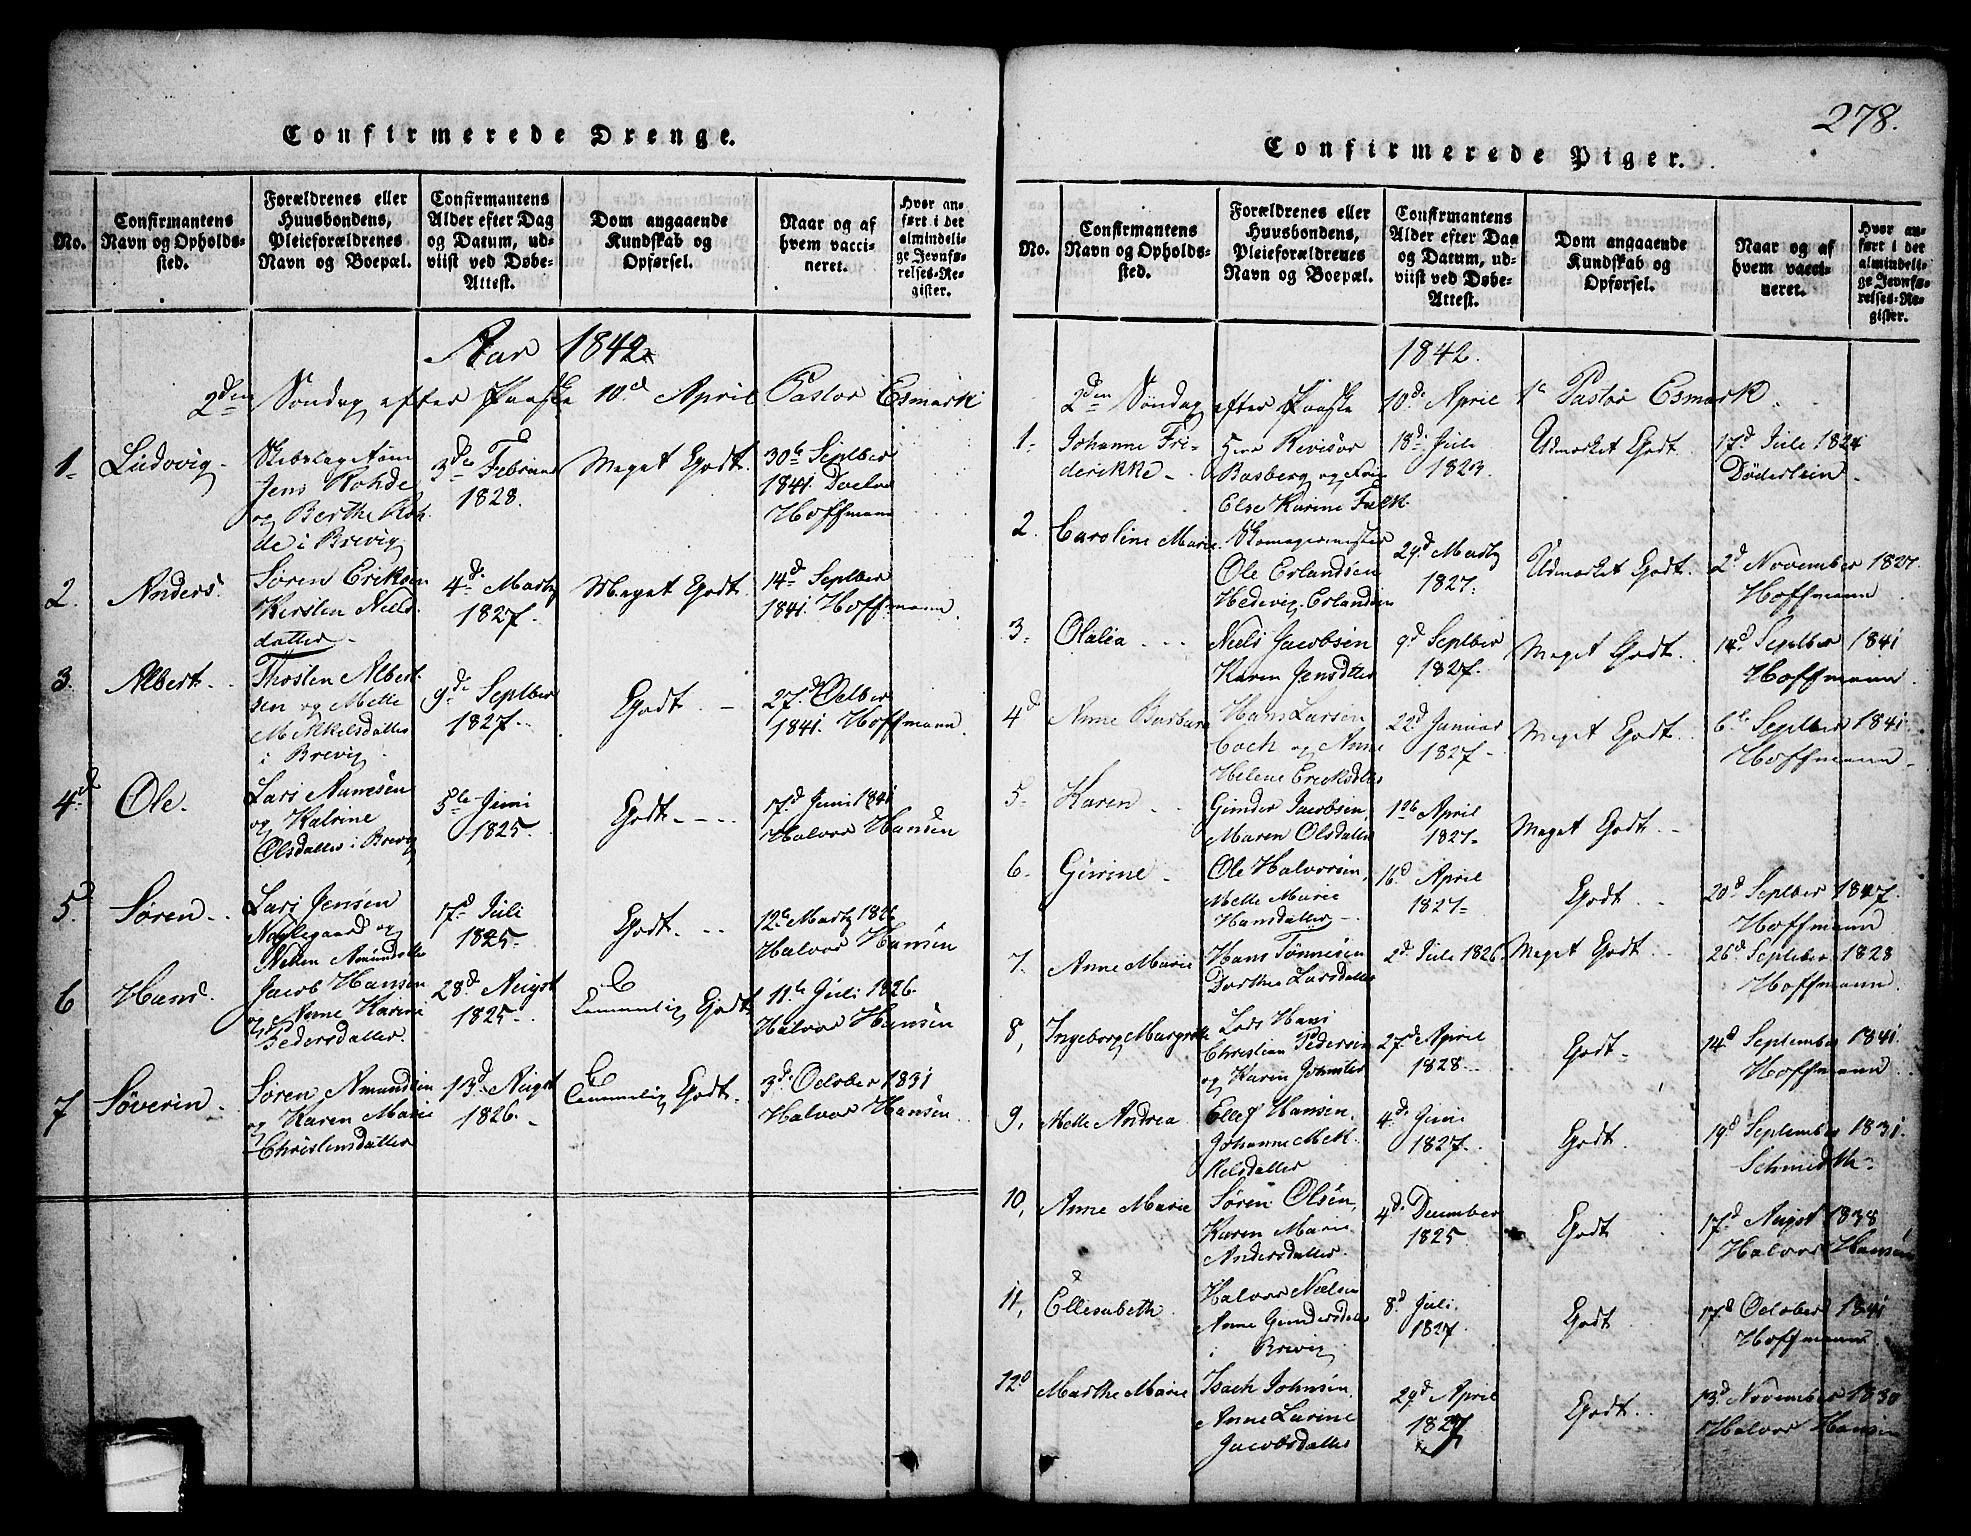 278.
Confirmerede Drenge.
No.
Confirmantens Navn og Opholdssted.
Forældrenes eller Huusbondens, Pleieforældrenes Navn og Boepæl.
Confirmantens Alder efter Dag og Datum, udviist ved Døbe-Attest.
Dom angaaende Kundskab og Opførsel.
Naar og af hvem vaccineret.
Hvor anført i det almindelige Jevnførelses-Register.
Aar 1842
2den Søndag efter Paaske 10d April Pastor Esmark
1. Ludovig
Jens Rohde
og Berthe Rohde i Brevig
3die Februar
1828.
Meget Godt.
30te Septber
1841. Doctor
Hoffmann
2. Anders
Søren Eriksen
Kirsten Nielsdatter
4d Martz
1827.
Meget Godt.
14d Septber
1841. Hoffmann.
3. Albert
Thosten Albertsen og Mette
Mikkelsdatter
i Brevig
9de Septber
1827.
Godt.
27d Octber
1841. Hoffmann.
4d Ole.
Lars
og Katrine
Olsdatter i Brevig
5te Juni
1825.
Godt.
17d Juni 1841
Halvor Hansen
5d Søren
Lars Jensen
og
Amundsdtter
17d Juli
1825.
Godt.
12te Martz 1826
Halvor Hansen
6 Hans
Jacob Hansen
og Anne Karine
Pedersdatter.
28d August
1825.
Temmelig Godt
11te Juli 1826.
Halvor Hansen
7 Søverin
Søren Amundsen
og Karen Marie
Christensdatter
13d August
1826.
Temmelig Godt.
3d October 1831
Halvor Hansen
Confirmerede Piger.
No.
Confirmantens Navn og Opholdssted.
Forældrenes eller Huusbondens, Pleieforældrenes Navn og Boepæl.
Confirmantens Alder efter Dag og Datum, udviist ved Døbe-Attest.
Dom angaaende Kundskab og Opførsel.
Naar og af hvem vaccineret.
Hvor anført i det almindelige Jevnførelses-Register.
1842.
2den Søndag efter Paaske 10de April Pastor Esmark
1. Johanne Friderikke
Revisor
Basberg og
Else Karine Falk.
18d Juli
1823.
Udmærket Godt.
17d Juli 1824
Døderlein.
2. Caroline Marie.
Skomagermester
Ole Erlandsen
Hedevig Erlandsen
29d Martz
1827.
Udmærket Godt.
2d November 1827.
Hoffmann
3. Olalia
Niels Jacobsen
Karen Jensdtter
9d Septber
1827.
Meget Godt.
14d Septber 1841
Hoffmann.
4d Anne Barbara
Hans Larsen
Coch og Anne
Helene Ericksdtter
22d Januar
1827.
Meget Godt.
6te Septber 1841.
Hoffmann.
5. Karen
Gunder Jacobsen,
Maren Olsdatter
April
1827.
Meget Godt.
6. Gurine
Ole Halvorsen,
Mette Marie
Hansdatter
16d April
1827.
Godt
20d Septber
Hoffmann
7. Anne Marie
Hans Tønnesen
Dorthe Larsdatter
2d Juli 1826.
Meget Godt.
26d September 1828
Hoffmann.
8, Ingeborg Margrethe
Hans
Christian Pedersen
og Karen
27d April
1828.
Godt
14d September 1841.
Hoffmann.
9, Mette Andrea
Ellef Hansen.
Johanne Mekkelsdatter
4de Juni
1827.
Godt.
19d September 1831.
Schmidth
10, Anne Marie
Søren Olsen,
Karen Marie
Andersdatter.
4de December
1825.
Godt
17d August 1838
Halvor Hansen
11, Ellesabeth
Halvor Nielsen
Anne Gundersdatter
i Brevig
8d Juli.
1827.
Godt
17d October 1841
Hoffmann.
12d Marthe Marie
Isach Johnsen.
Anne Larine
Jacobsdatter
29d April
1827
Godt.
13d November 1830
Halvor Hansen